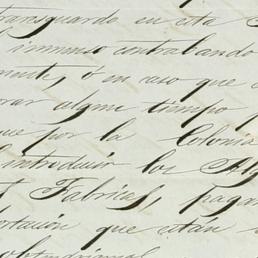 transguardo, en esta
inmenso contrabando
mente, ó en caso que
rar algun tiempo
que por la Colonia
introducir los Al
Fabricas, pagan
ortación que estan